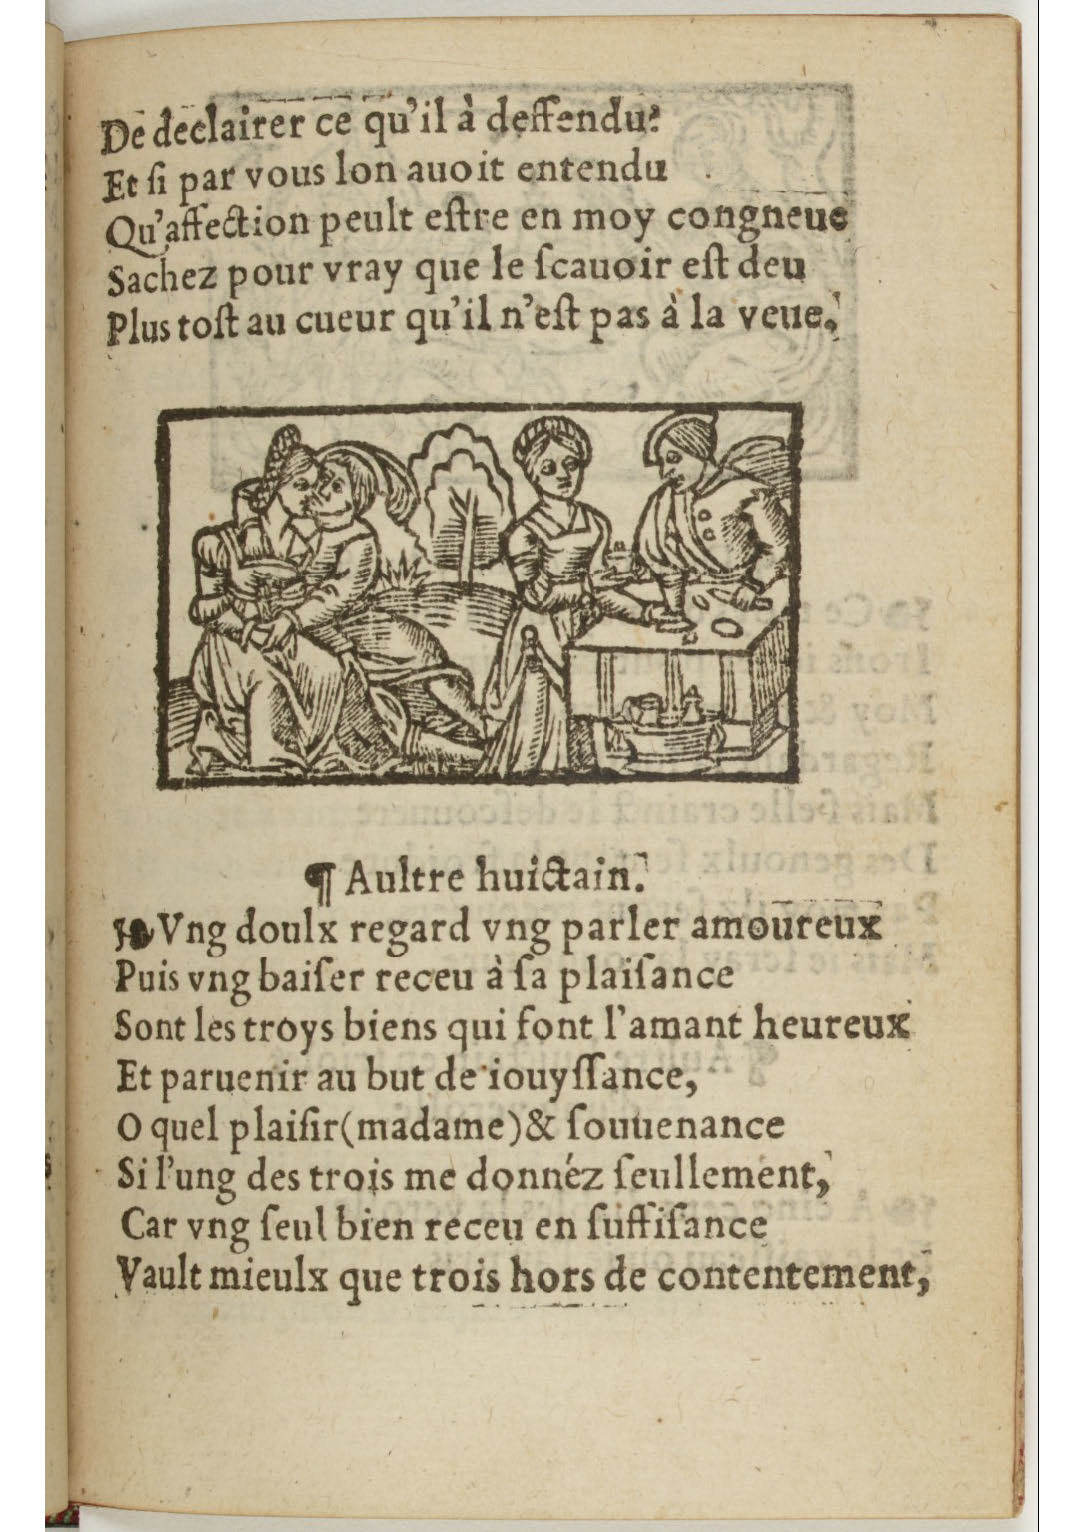 De declairer ce qu'il à deffendu?
Et ſi par vous lon auoit entendu
Qu'affection peult eſtre en moy congneue
Sachez pour vray que le ſcauoir eſt deu
Plus toſt au cueur qu'il n'eſt pas à la veue.
¶ Aultre huictain.
❧ Vng doulx regard vng parler amoureux
Puis vng baiſer receu à ſa plaiſance
Sont les troys biens qui font l'amant heureux
Et paruenir au but de iouyſſance,
O quel plaiſir(madame)& ſouuenance
Si l'ung des trois me donnéz ſeullement,
Car vng ſeul bien receu en ſuffiſance
Vault mieulx que trois hors de contentement,